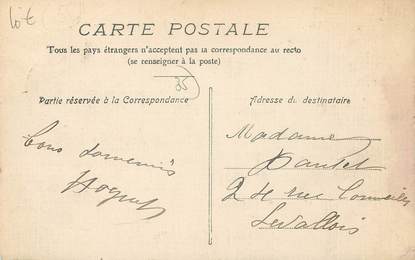 Lot
CARTE POSTALE
Tous les pays étrangers n'acceptent pas la correspondance au recto
(se renseigner à la poste)
35
Partie réservée à la Correspondance
Bons souvenirs
Adresse du destinataire
Madame
24 rue
Levallois